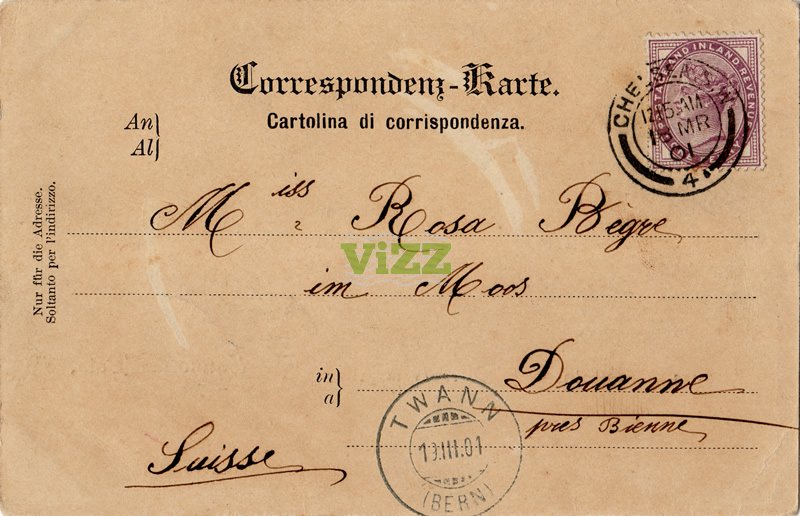 Correspondenz-Karte.
Cartolina di corrispondenza.
An
Al
POSTAGE AND INLAND REVENUE
CHELSEA
MR
01
4
Nur für die Adresse.
Soltanto per l'indirizzo.
Miss Rosa Bègre
ViZZ
im Moos
in
a
Douanne
près Bienne
Suisse
TWANN
13.III.01
(BERN)